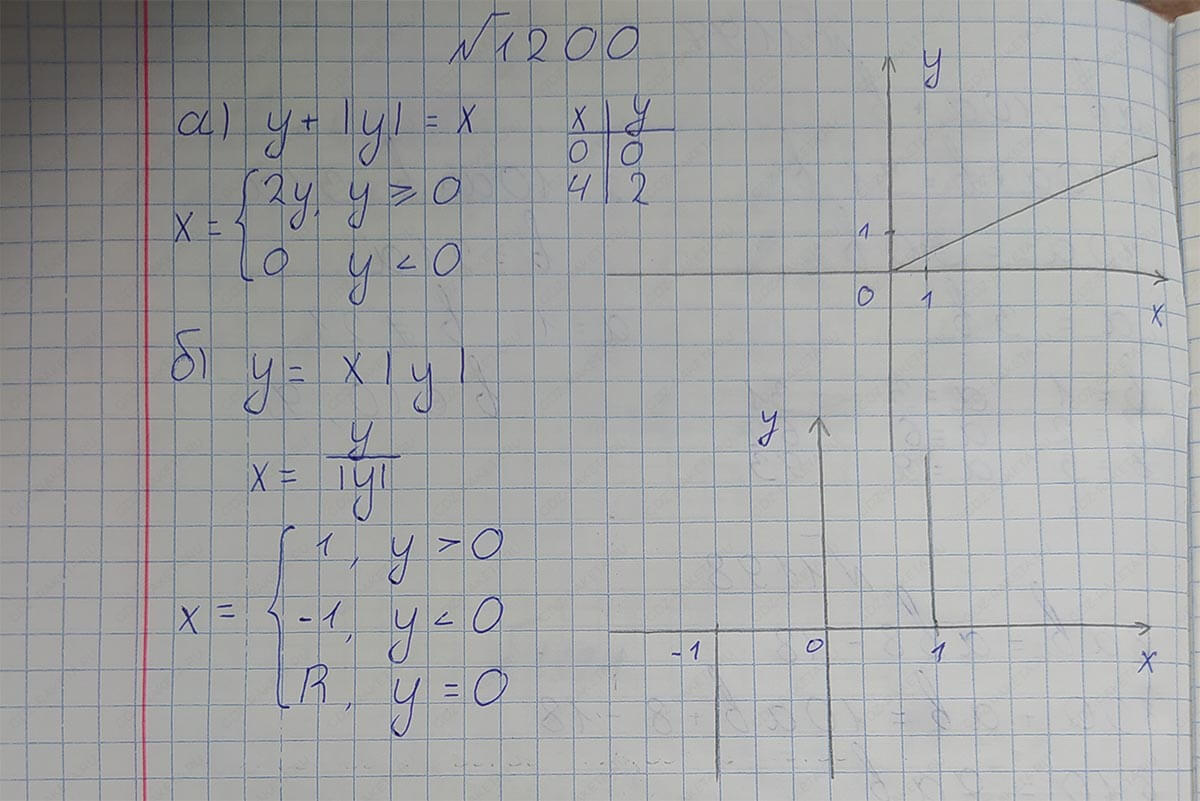 √1200
а) y + |y| = x
x | y
0 | 0
4 | 2
x = { 2y, y ≥ 0
0 y < 0
y
1
0 1 x
б) y = x|y|
x = y/|y|
x = { 1, y > 0
-1, y < 0
R, y = 0
y
-1 0 1 x